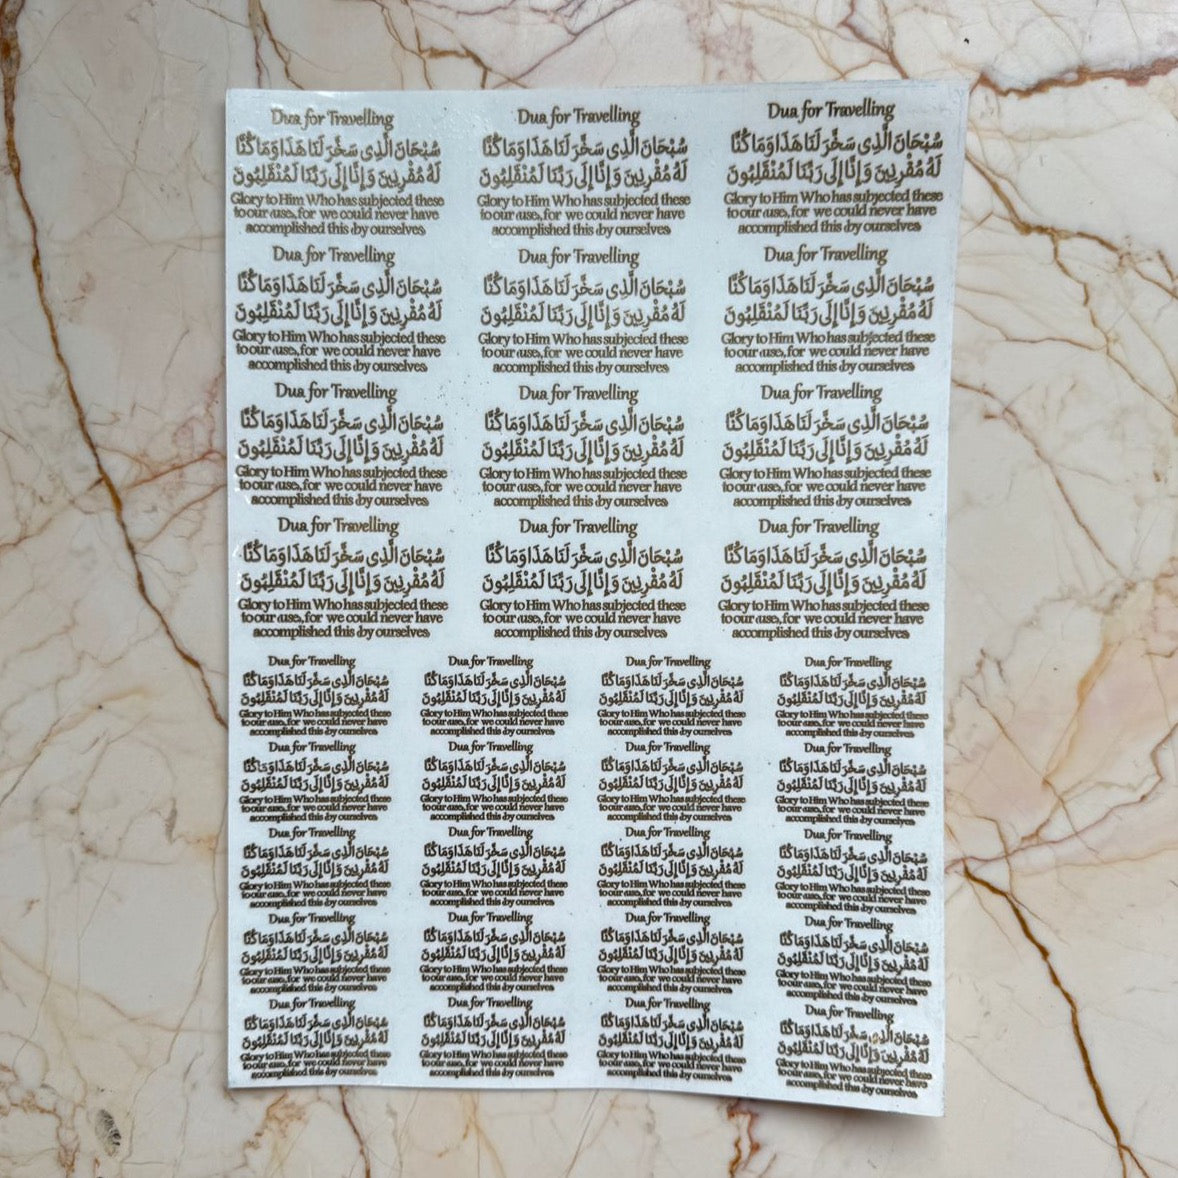 Dua for Travelling
سُبْحَانَ الَّذِى سَخَّرَ لَنَا هَذَا وَمَا كُنَّا
لَهُ مُقْرِنِينَ وَإِنَّا إِلَى رَبِّنَا لَمُنْقَلِبُونَ
Glory to Him Who has subjected these
to our use, for we could never have
accomplished this by ourselves
Dua for Travelling
سُبْحَانَ الَّذِى سَخَّرَ لَنَا هَذَا وَمَا كُنَّا
لَهُ مُقْرِنِينَ وَإِنَّا إِلَى رَبِّنَا لَمُنْقَلِبُونَ
Glory to Him Who has subjected these
to our use, for we could never have
accomplished this by ourselves
Dua for Travelling
سُبْحَانَ الَّذِى سَخَّرَ لَنَا هَذَا وَمَا كُنَّا
لَهُ مُقْرِنِينَ وَإِنَّا إِلَى رَبِّنَا لَمُنْقَلِبُونَ
Glory to Him Who has subjected these
to our use, for we could never have
accomplished this by ourselves
Dua for Travelling
سُبْحَانَ الَّذِى سَخَّرَ لَنَا هَذَا وَمَا كُنَّا
لَهُ مُقْرِنِينَ وَإِنَّا إِلَى رَبِّنَا لَمُنْقَلِبُونَ
Glory to Him Who has subjected these
to our use, for we could never have
accomplished this by ourselves
Dua for Travelling
سُبْحَانَ الَّذِى سَخَّرَ لَنَا هَذَا وَمَا كُنَّا
لَهُ مُقْرِنِينَ وَإِنَّا إِلَى رَبِّنَا لَمُنْقَلِبُونَ
Glory to Him Who has subjected these
to our use, for we could never have
accomplished this by ourselves
Dua for Travelling
سُبْحَانَ الَّذِى سَخَّرَ لَنَا هَذَا وَمَا كُنَّا
لَهُ مُقْرِنِينَ وَإِنَّا إِلَى رَبِّنَا لَمُنْقَلِبُونَ
Glory to Him Who has subjected these
to our use, for we could never have
accomplished this by ourselves
Dua for Travelling
سُبْحَانَ الَّذِى سَخَّرَ لَنَا هَذَا وَمَا كُنَّا
لَهُ مُقْرِنِينَ وَإِنَّا إِلَى رَبِّنَا لَمُنْقَلِبُونَ
Glory to Him Who has subjected these
to our use, for we could never have
accomplished this by ourselves
Dua for Travelling
سُبْحَانَ الَّذِى سَخَّرَ لَنَا هَذَا وَمَا كُنَّا
لَهُ مُقْرِنِينَ وَإِنَّا إِلَى رَبِّنَا لَمُنْقَلِبُونَ
Glory to Him Who has subjected these
to our use, for we could never have
accomplished this by ourselves
Dua for Travelling
سُبْحَانَ الَّذِى سَخَّرَ لَنَا هَذَا وَمَا كُنَّا
لَهُ مُقْرِنِينَ وَإِنَّا إِلَى رَبِّنَا لَمُنْقَلِبُونَ
Glory to Him Who has subjected these
to our use, for we could never have
accomplished this by ourselves
Dua for Travelling
سُبْحَانَ الَّذِى سَخَّرَ لَنَا هَذَا وَمَا كُنَّا
لَهُ مُقْرِنِينَ وَإِنَّا إِلَى رَبِّنَا لَمُنْقَلِبُونَ
Glory to Him Who has subjected these
to our use, for we could never have
accomplished this by ourselves
Dua for Travelling
سُبْحَانَ الَّذِى سَخَّرَ لَنَا هَذَا وَمَا كُنَّا
لَهُ مُقْرِنِينَ وَإِنَّا إِلَى رَبِّنَا لَمُنْقَلِبُونَ
Glory to Him Who has subjected these
to our use, for we could never have
accomplished this by ourselves
Dua for Travelling
سُبْحَانَ الَّذِى سَخَّرَ لَنَا هَذَا وَمَا كُنَّا
لَهُ مُقْرِنِينَ وَإِنَّا إِلَى رَبِّنَا لَمُنْقَلِبُونَ
Glory to Him Who has subjected these
to our use, for we could never have
accomplished this by ourselves
Dua for Travelling
سُبْحَانَ الَّذِى سَخَّرَ لَنَا هَذَا وَمَا كُنَّا
لَهُ مُقْرِنِينَ وَإِنَّا إِلَى رَبِّنَا لَمُنْقَلِبُونَ
Glory to Him Who has subjected these
to our use, for we could never have
accomplished this by ourselves
Dua for Travelling
سُبْحَانَ الَّذِى سَخَّرَ لَنَا هَذَا وَمَا كُنَّا
لَهُ مُقْرِنِينَ وَإِنَّا إِلَى رَبِّنَا لَمُنْقَلِبُونَ
Glory to Him Who has subjected these
to our use, for we could never have
accomplished this by ourselves
Dua for Travelling
سُبْحَانَ الَّذِى سَخَّرَ لَنَا هَذَا وَمَا كُنَّا
لَهُ مُقْرِنِينَ وَإِنَّا إِلَى رَبِّنَا لَمُنْقَلِبُونَ
Glory to Him Who has subjected these
to our use, for we could never have
accomplished this by ourselves
Dua for Travelling
سُبْحَانَ الَّذِى سَخَّرَ لَنَا هَذَا وَمَا كُنَّا
لَهُ مُقْرِنِينَ وَإِنَّا إِلَى رَبِّنَا لَمُنْقَلِبُونَ
Glory to Him Who has subjected these
to our use, for we could never have
accomplished this by ourselves
Dua for Travelling
سُبْحَانَ الَّذِى سَخَّرَ لَنَا هَذَا وَمَا كُنَّا
لَهُ مُقْرِنِينَ وَإِنَّا إِلَى رَبِّنَا لَمُنْقَلِبُونَ
Glory to Him Who has subjected these
to our use, for we could never have
accomplished this by ourselves
Dua for Travelling
سُبْحَانَ الَّذِى سَخَّرَ لَنَا هَذَا وَمَا كُنَّا
لَهُ مُقْرِنِينَ وَإِنَّا إِلَى رَبِّنَا لَمُنْقَلِبُونَ
Glory to Him Who has subjected these
to our use, for we could never have
accomplished this by ourselves
Dua for Travelling
سُبْحَانَ الَّذِى سَخَّرَ لَنَا هَذَا وَمَا كُنَّا
لَهُ مُقْرِنِينَ وَإِنَّا إِلَى رَبِّنَا لَمُنْقَلِبُونَ
Glory to Him Who has subjected these
to our use, for we could never have
accomplished this by ourselves
Dua for Travelling
سُبْحَانَ الَّذِى سَخَّرَ لَنَا هَذَا وَمَا كُنَّا
لَهُ مُقْرِنِينَ وَإِنَّا إِلَى رَبِّنَا لَمُنْقَلِبُونَ
Glory to Him Who has subjected these
to our use, for we could never have
accomplished this by ourselves
Dua for Travelling
سُبْحَانَ الَّذِى سَخَّرَ لَنَا هَذَا وَمَا كُنَّا
لَهُ مُقْرِنِينَ وَإِنَّا إِلَى رَبِّنَا لَمُنْقَلِبُونَ
Glory to Him Who has subjected these
to our use, for we could never have
accomplished this by ourselves
Dua for Travelling
سُبْحَانَ الَّذِى سَخَّرَ لَنَا هَذَا وَمَا كُنَّا
لَهُ مُقْرِنِينَ وَإِنَّا إِلَى رَبِّنَا لَمُنْقَلِبُونَ
Glory to Him Who has subjected these
to our use, for we could never have
accomplished this by ourselves
Dua for Travelling
سُبْحَانَ الَّذِى سَخَّرَ لَنَا هَذَا وَمَا كُنَّا
لَهُ مُقْرِنِينَ وَإِنَّا إِلَى رَبِّنَا لَمُنْقَلِبُونَ
Glory to Him Who has subjected these
to our use, for we could never have
accomplished this by ourselves
Dua for Travelling
سُبْحَانَ الَّذِى سَخَّرَ لَنَا هَذَا وَمَا كُنَّا
لَهُ مُقْرِنِينَ وَإِنَّا إِلَى رَبِّنَا لَمُنْقَلِبُونَ
Glory to Him Who has subjected these
to our use, for we could never have
accomplished this by ourselves
Dua for Travelling
سُبْحَانَ الَّذِى سَخَّرَ لَنَا هَذَا وَمَا كُنَّا
لَهُ مُقْرِنِينَ وَإِنَّا إِلَى رَبِّنَا لَمُنْقَلِبُونَ
Glory to Him Who has subjected these
to our use, for we could never have
accomplished this by ourselves
Dua for Travelling
سُبْحَانَ الَّذِى سَخَّرَ لَنَا هَذَا وَمَا كُنَّا
لَهُ مُقْرِنِينَ وَإِنَّا إِلَى رَبِّنَا لَمُنْقَلِبُونَ
Glory to Him Who has subjected these
to our use, for we could never have
accomplished this by ourselves
Dua for Travelling
سُبْحَانَ الَّذِى سَخَّرَ لَنَا هَذَا وَمَا كُنَّا
لَهُ مُقْرِنِينَ وَإِنَّا إِلَى رَبِّنَا لَمُنْقَلِبُونَ
Glory to Him Who has subjected these
to our use, for we could never have
accomplished this by ourselves
Dua for Travelling
سُبْحَانَ الَّذِى سَخَّرَ لَنَا هَذَا وَمَا كُنَّا
لَهُ مُقْرِنِينَ وَإِنَّا إِلَى رَبِّنَا لَمُنْقَلِبُونَ
Glory to Him Who has subjected these
to our use, for we could never have
accomplished this by ourselves
Dua for Travelling
سُبْحَانَ الَّذِى سَخَّرَ لَنَا هَذَا وَمَا كُنَّا
لَهُ مُقْرِنِينَ وَإِنَّا إِلَى رَبِّنَا لَمُنْقَلِبُونَ
Glory to Him Who has subjected these
to our use, for we could never have
accomplished this by ourselves
Dua for Travelling
سُبْحَانَ الَّذِى سَخَّرَ لَنَا هَذَا وَمَا كُنَّا
لَهُ مُقْرِنِينَ وَإِنَّا إِلَى رَبِّنَا لَمُنْقَلِبُونَ
Glory to Him Who has subjected these
to our use, for we could never have
accomplished this by ourselves
Dua for Travelling
سُبْحَانَ الَّذِى سَخَّرَ لَنَا هَذَا وَمَا كُنَّا
لَهُ مُقْرِنِينَ وَإِنَّا إِلَى رَبِّنَا لَمُنْقَلِبُونَ
Glory to Him Who has subjected these
to our use, for we could never have
accomplished this by ourselves
Dua for Travelling
سُبْحَانَ الَّذِى سَخَّرَ لَنَا هَذَا وَمَا كُنَّا
لَهُ مُقْرِنِينَ وَإِنَّا إِلَى رَبِّنَا لَمُنْقَلِبُونَ
Glory to Him Who has subjected these
to our use, for we could never have
accomplished this by ourselves